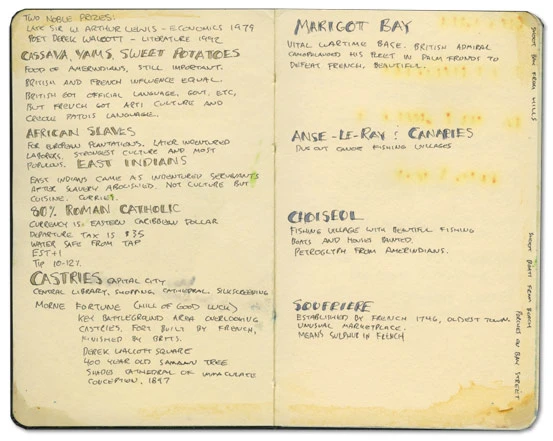 TWO NOBLE PRIZES:
LATE SIR W. ARTHUR LEWIS - ECONOMICS 1979
POET DEREK WALCOTT - LITERATURE 1992
CASSAVA, YAMS, SWEET POTATOES
FOOD OF AMERINDIANS, STILL IMPORTANT.
BRITISH AND FRENCH INFLUENCE EQUAL.
BRITISH GOT OFFICIAL LANGUAGE, GOVT, ETC,
BUT FRENCH GOT ART CULTURE AND
CREOLE PATOIS LANGUAGE.
AFRICAN SLAVES
FOR EUROPEAN PLANTATIONS. LATER INDENTURED
LABORERS, STRONGEST CULTURE AND MOST
POPULOUS. EAST INDIANS
EAST INDIANS CAME AS INDENTURED SERVANTS
AFTER SLAVERY ABOLISHED. NOT CULTURE BUT
CUISINE. CURRIES.
80% ROMAN CATHOLIC
CURRENCY IS EASTERN CARIBBEAN DOLLAR
DEPARTURE TAX IS $35
WATER SAFE FROM TAP
EST+1
TIP 10-12%
CASTRIES CAPITAL CITY
CENTRAL LIBRARY, SHOPPING, CATHEDRAL, SILKSCREENING
MORNE FORTUNE (HILL OF GOOD LUCK)
KEY BATTLEGROUND AREA OVERLOOKING
CASTRIES, FORT BUILT BY FRENCH,
FINISHED BY BRITS.
DEREK WALCOTT SQUARE
400 YEAR OLD SAMAAN TREE
SHADES CATHEDRAL OF IMMACULATE
CONCEPTION, 1897
MARIGOT BAY
VITAL WARTIME BASE. BRITISH ADMIRAL
CAMOFLAUGED HIS FLEET IN PALM FRONDS TO
DEFEAT FRENCH, BEAUTIFUL.
ANSE-LE-RAY & CANARIES
DUG OUT CANOE FISHING VILLAGES
CHOISEUL
FISHING VILLAGE WITH BEAUTIFUL FISHING
BOATS AND HOUSES PAINTED.
PETROGLYPH FROM AMERINDIANS.
SOUFRIERE
ESTABLISHED BY FRENCH 1746, OLDEST TOWN
UNUSUAL MARKETPLACE.
MEANS SULPHUR IN FRENCH
SHOOT BAY FROM HILLS
SHOOT BOATS FROM
PEOPLE ON BAY STREET